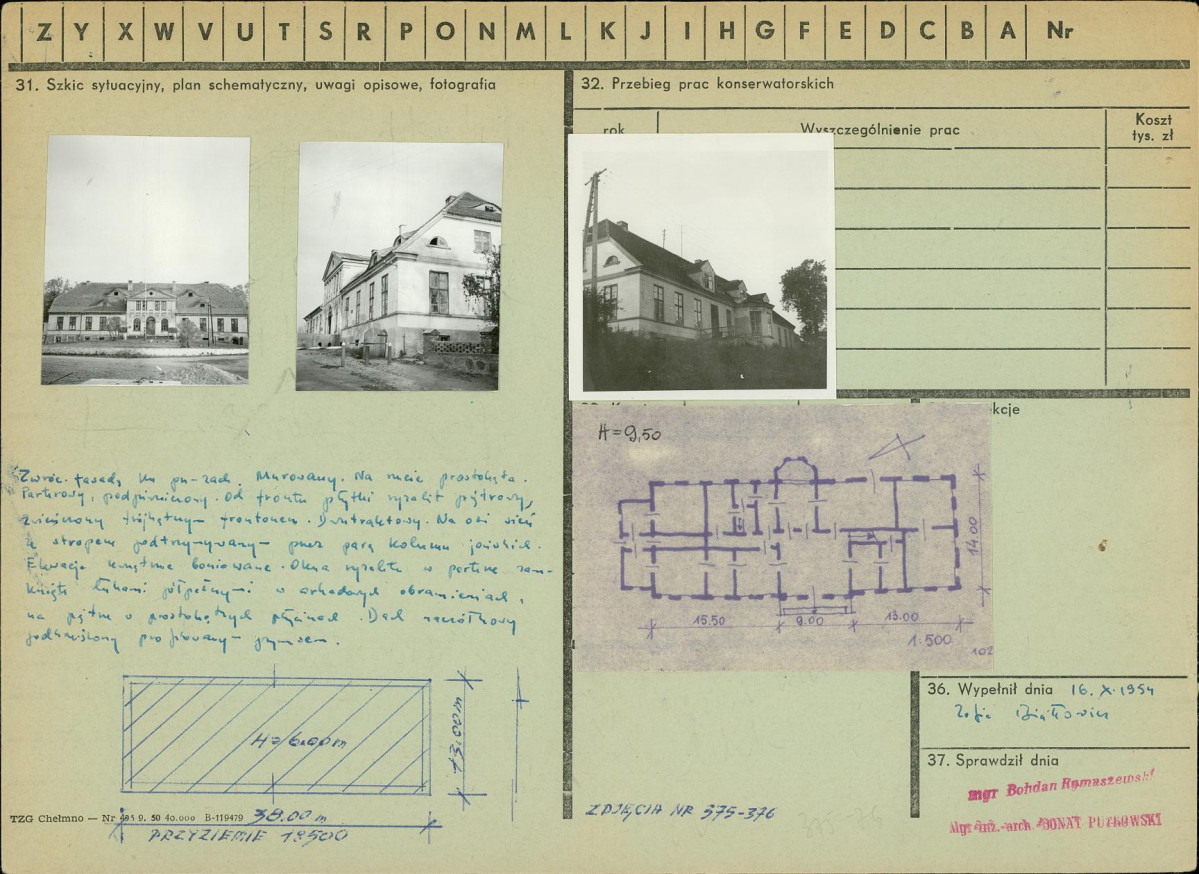 Z Y X W V U T S R P O N M L K J I H G F E D C B A Nr
31. Szkic sytuacyjny, plan schematyczny, uwagi opisowe, fotografia
Zwróc. fasadą ku pn-zach. Murowany. Na rzucie prostokąta.
Parterowy, podpiwniczony. Od frontu płytki ryzalit piętrowy,
zwieńczony trójkątnym frontonem. Dwutraktowy. Na osi sień
z stropem podtrzymywanym przez parę kolumn jońskich.
Elewacje boniowane. Okna ryzalitu w parterze zam-
knięte łukami półpełnymi w arkadowych obramieniach,
na piętrze w prostokątnych płycinach. Dach naczółkowy
podkreślony profilowanym gzymsem.
H=6.00m
38.00m
PRZYZIEMIE 1:500
TZG Chełmno — Nr 9. 50 40.000 B-119479
32. Przebieg prac konserwatorskich
rok
Wyszczególnienie prac
Koszt
tys. zł
kcje
H=9,50
14.00
15.50
9.00
13.00
1:500
102
ZDJĘCIA NR 375-376
375-76
36. Wypełnił dnia 16. X. 1954
Zofia Białłowicz
37. Sprawdził dnia
mgr Bohdan Rymaszewski
Mgr inż. arch. DONAT PUTKOWSKI